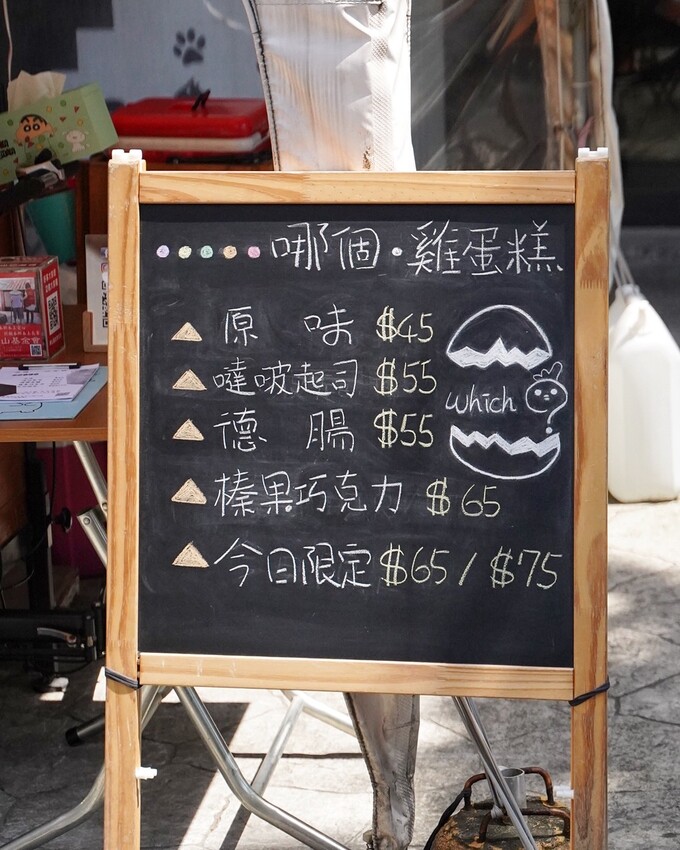 哪個·雞蛋糕
原味 $45
噠啵起司 $55
德腸 $55
榛果巧克力 $65
今日限定 $65/$75
which